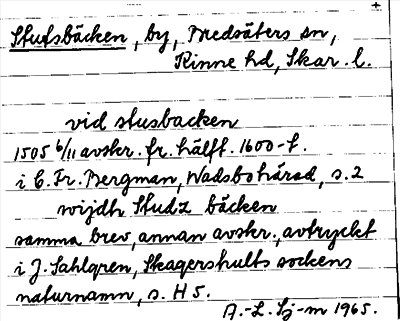 Stutsbäcken, by, Medsäters sn,
Kinne hd, Skar. l.
vid stusbacken
1505 6/11 avskr. fr. hälft. 1600-t.
i C. Fr. Bergman, Wadsbohärad, s. 2
wijdh Studz bäcken
samma brev, annan avskr., avtryckt
i J. Sahlgren, Skagershults sockens
naturnamn, s. H 5.
A.-L. Sj-m 1965.